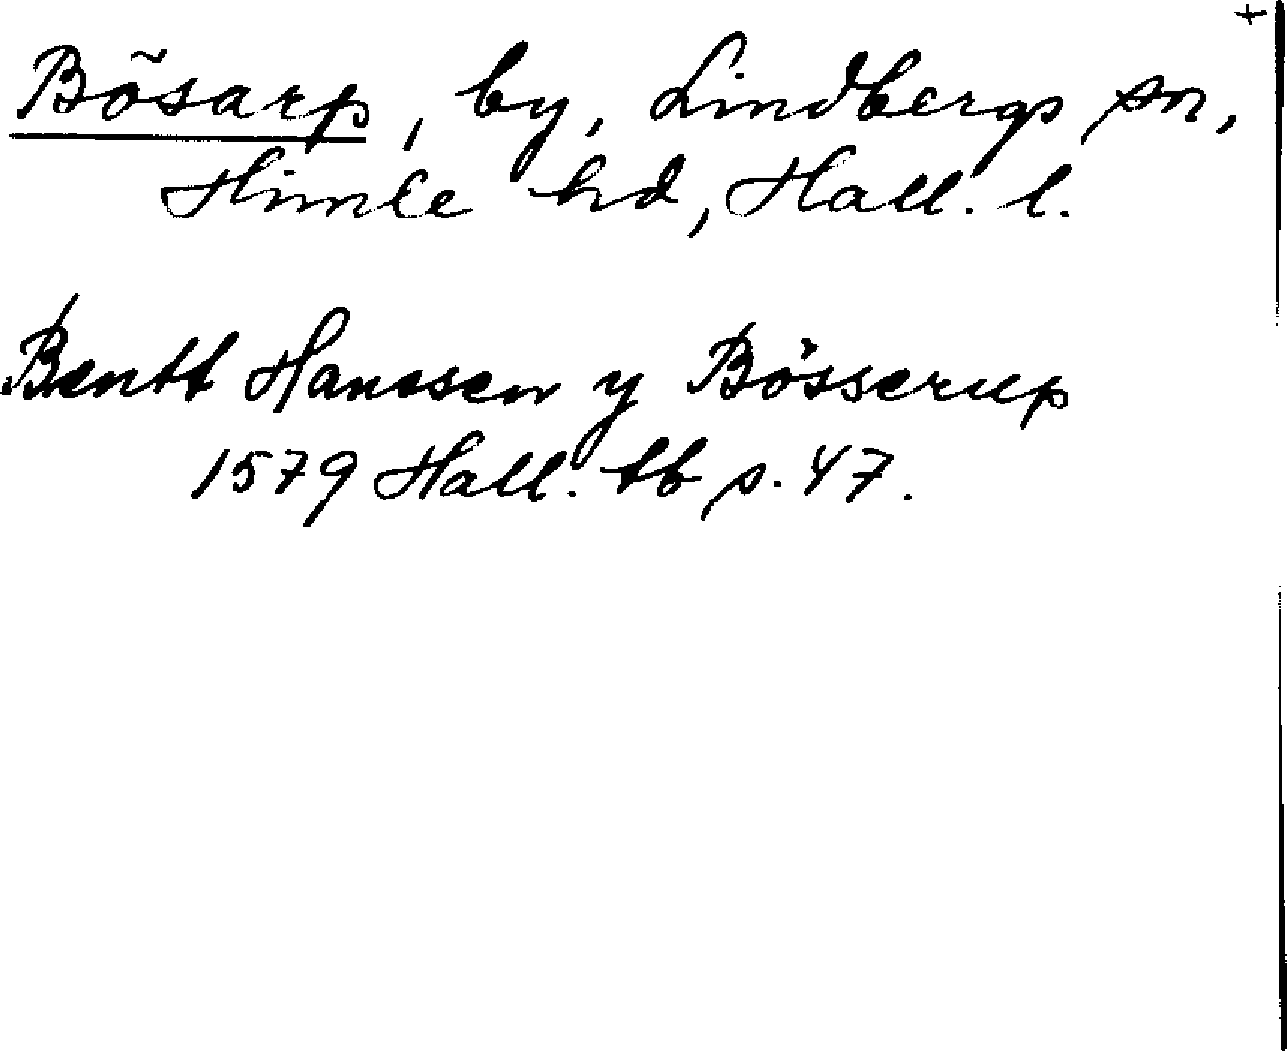 +
Bösarp, by, Lindbergs sn,
Himle hd, Hall. l.
Bentt Hanssen y Bösserup
1579 Hall. tb s. 47.